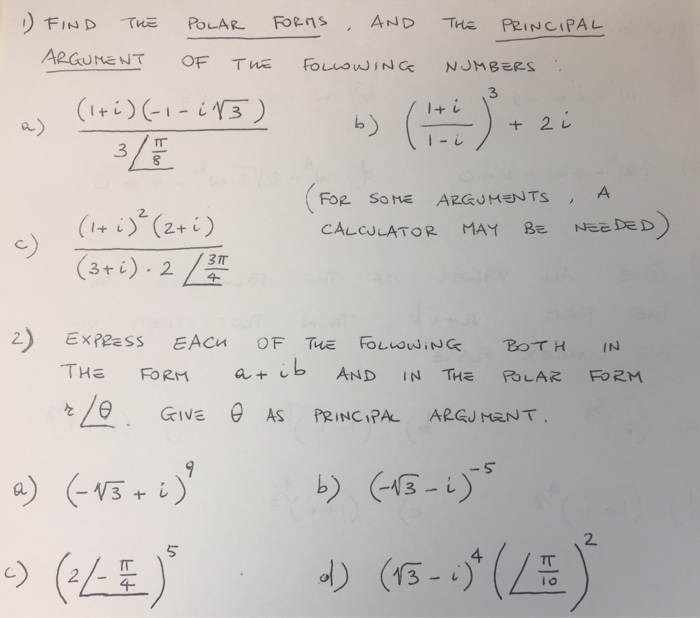 1) FIND THE POLAR FORMS, AND THE PRINCIPAL
ARGUMENT OF THE FOLLOWING NUMBERS :
a) (1+i)(-1-i√3) / 3∠π/8
b) ((1+i)/(1-i))³ + 2i
(FOR SOME ARGUMENTS, A
CALCULATOR MAY BE NEEDED)
c) (1+i)²(2+i) / (3+i)·2∠3π/4
2) EXPRESS EACH OF THE FOLLOWING BOTH IN
THE FORM a+ib AND IN THE POLAR FORM
r∠θ. GIVE θ AS PRINCIPAL ARGUMENT.
a) (-√3+i)⁹
b) (-√3-i)⁻⁵
c) (2∠-π/4)⁵
d) (√3-i)⁴(∠π/10)²